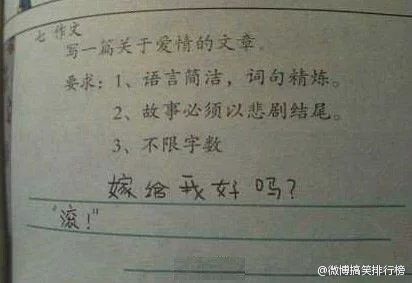 七 作文
写一篇关于爱情的文章。
要求：1、语言简洁，词句精炼。
2、故事必须以悲剧结尾。
3、不限字数
嫁给我好吗？
“滚！”
@微博搞笑排行榜